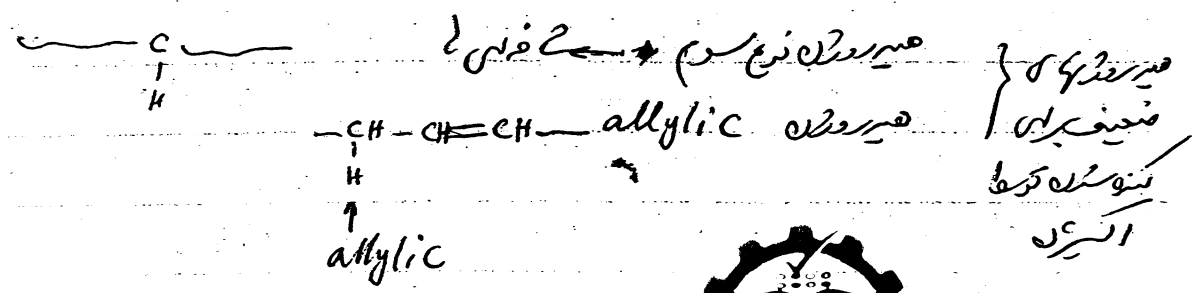 هیدروژنهای ضعیف برای کنده شدن توسط اکسیژن
هیدروژن نوع سوم ↔ شاخه فرعی
~ C ~
H
هیدروژن allylic
– CH – CH = CH –
H
↑
allylic